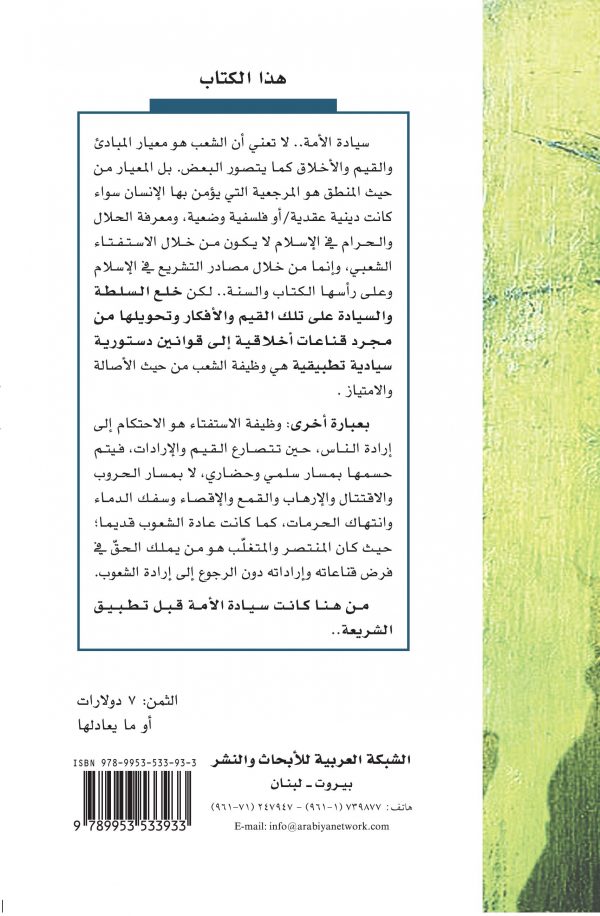 هذا الكتاب
سيادة الأمة.. لا تعني أن الشعب هو معيار المبادئ
والقيم والأخلاق كما يتصور البعض. بل المعيار من
حيث المنطق هو المرجعية التي يؤمن بها الإنسان سواء
كانت دينية عقدية/أو فلسفية وضعية، ومعرفة الحلال
والحرام في الإسلام لا يكون من خلال الاستفتاء
الشعبي، وإنما من خلال مصادر التشريع في الإسلام
وعلى رأسها الكتاب والسنة.. لكن خلع السلطة
والسيادة على تلك القيم والأفكار وتحويلها من
مجرد قناعات أخلاقية إلى قوانين دستورية
سيادية تطبيقية هي وظيفة الشعب من حيث الأصالة
والامتياز .
بعبارة أخرى: وظيفة الاستفتاء هو الاحتكام إلى
إرادة الناس، حين تتصارع القيم والإرادات، فيتم
حسمها بمسار سلمي وحضاري، لا بمسار الحروب
والاقتتال والإرهاب والقمع والإقصاء وسفك الدماء
وانتهاك الحرمات، كما كانت عادة الشعوب قديما؛
حيث كان المنتصر والمتغلّب هو من يملك الحقّ في
فرض قناعاته وإراداته دون الرجوع إلى إرادة الشعوب.
من هنا كانت سيادة الأمة قبل تطبيق
الشريعة..
الثمن: ٧ دولارات
أو ما يعادلها
الشبكة العربية للأبحاث والنشر
بيروت - لبنان
هاتف: ٧٣٩٨٧٧ (١-٩٦١) - ٢٤٧٩٤٧ (٧١-٩٦١)
E-mail: info@arabiyanetwork.com
ISBN 978-9953-533-93-3
9 789953 533933